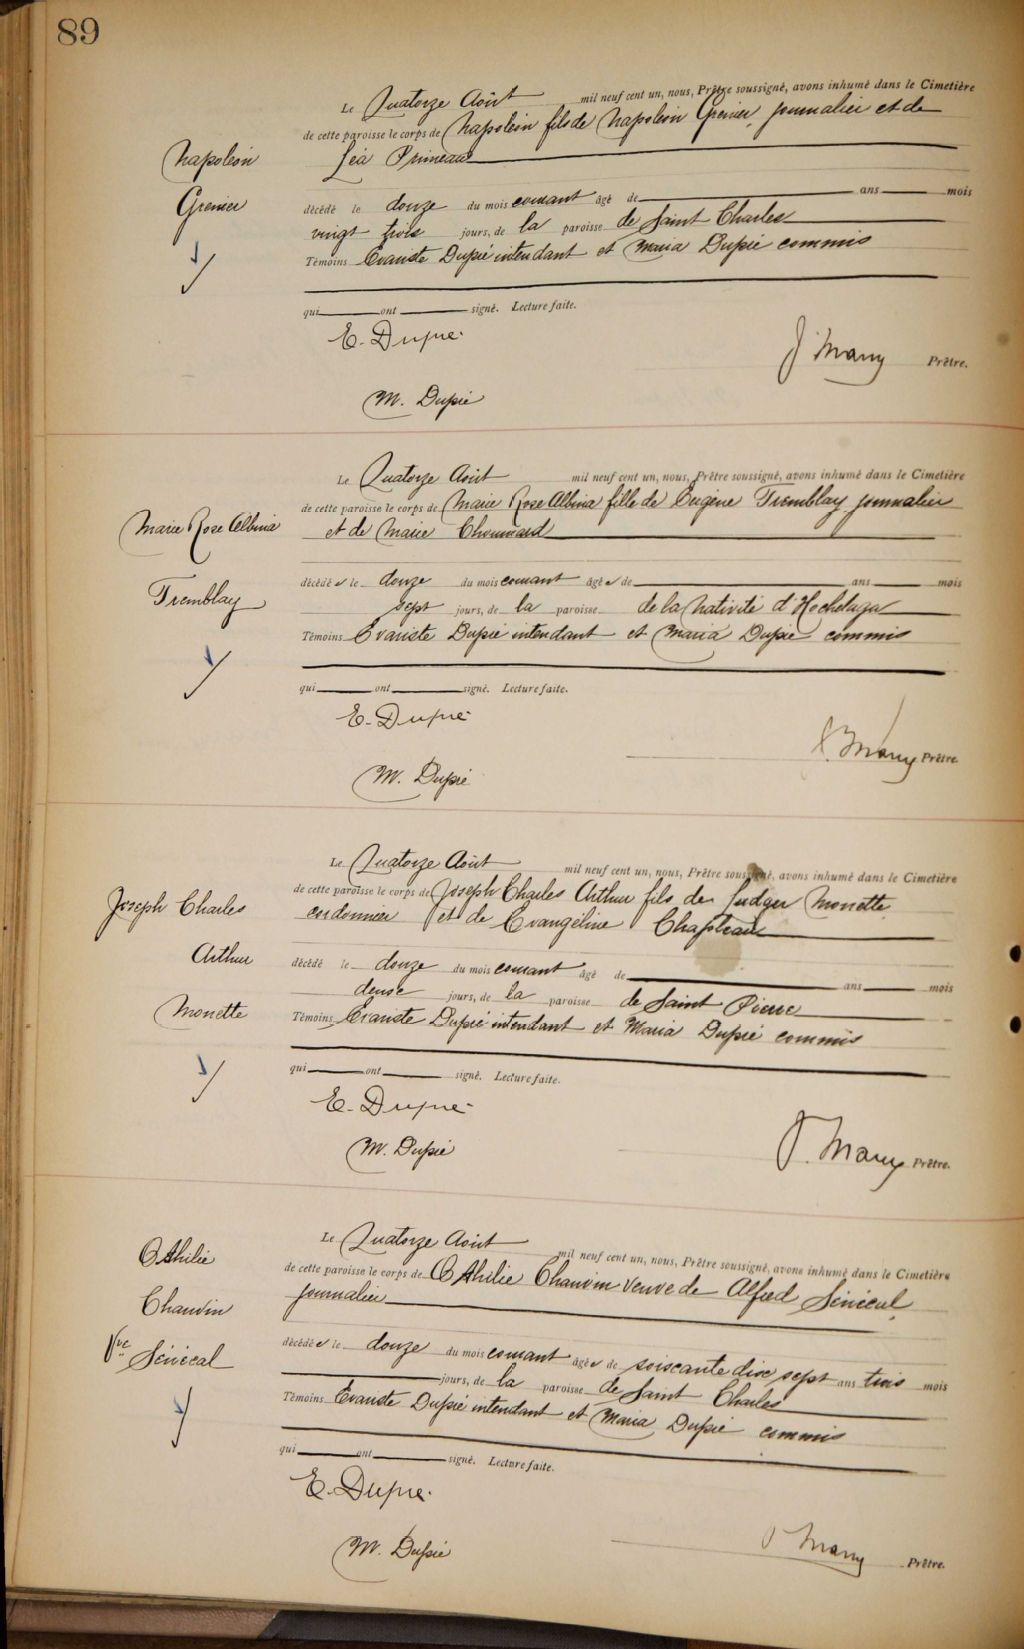 89
Le Quatorze Août mil neuf cent un, nous, Prêtre soussigné, avons inhumé dans le Cimetière
de cette paroisse le corps de Napoléon fils de Napoléon Grenier, journalier et de
Léa Primeau
Napoléon
Grenier
décédé le douze du mois courant âgé de ans mois
vingt trois jours, de la paroisse de Saint Charles
Témoins Evariste Dupré intendant et Maria Dupré commis
qui ont signé. Lecture faite.
E. Dupré
J. Many Prêtre.
M. Dupré
Le Quatorze Août mil neuf cent un, nous, Prêtre soussigné, avons inhumé dans le Cimetière
de cette paroisse le corps de Marie Rose Albina fille de Eugène Tremblay journalier
et de Marie Chouinard
Marie Rose Albina
Tremblay
décédée le douze du mois courant âgée de ans mois
sept jours, de la paroisse de la Nativité d'Hochelaga
Témoins Evariste Dupré intendant et Maria Dupré commis
qui ont signé. Lecture faite.
E. Dupré
J. Many Prêtre.
M. Dupré
Le Quatorze Août mil neuf cent un, nous, Prêtre soussigné, avons inhumé dans le Cimetière
de cette paroisse le corps de Joseph Charles Arthur fils de Ludger Monette
cordonnier et de Evangéline Chapleau
Joseph Charles
Arthur
Monette
décédé le douze du mois courant âgé de ans mois
deuse jours, de la paroisse de Saint Pierre
Témoins Evariste Dupré intendant et Maria Dupré commis
qui ont signé. Lecture faite.
E. Dupré
J. Many Prêtre.
M. Dupré
Le Quatorze Août mil neuf cent un, nous, Prêtre soussigné, avons inhumé dans le Cimetière
de cette paroisse le corps de Othilie Chauvin veuve de Alfred Sénécal,
journalier
Othilie
Chauvin
Vve Sénécal
décédée le douze du mois courant âgée de soiscante disc sept ans trois mois
jours, de la paroisse de Saint Charles
Témoins Evariste Dupré intendant et Maria Dupré commis
qui ont signé. Lecture faite.
E. Dupré.
M. Dupré
J. Many Prêtre.